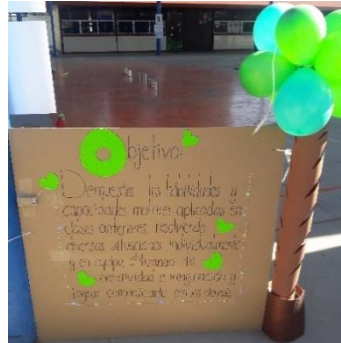 Objetivo:
Demuestra las habilidades y
capacidades motrices aplicadas en
clases anteriores resolviendo
diversas situaciones individualmente
y en equipo utilizando la
creatividad e imaginación y
lograr comunicarte con los demás